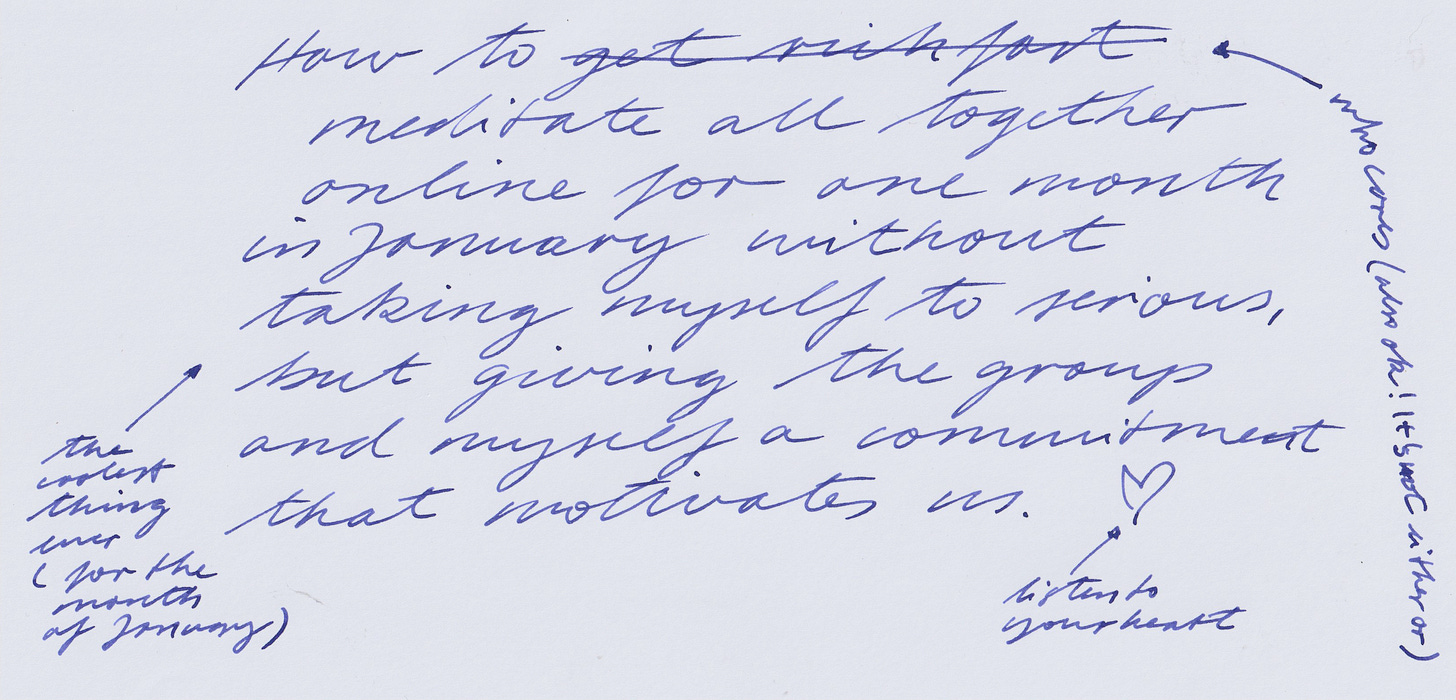 How to get rich fast
meditate all together
online for one month
in January without
taking myself to serious,
but giving the group
and myself a commitment
that motivates us.
who cares (also ok! It's not either or)
the
coolest
thing
ever
( for the
month
of January)
listen to
your heart